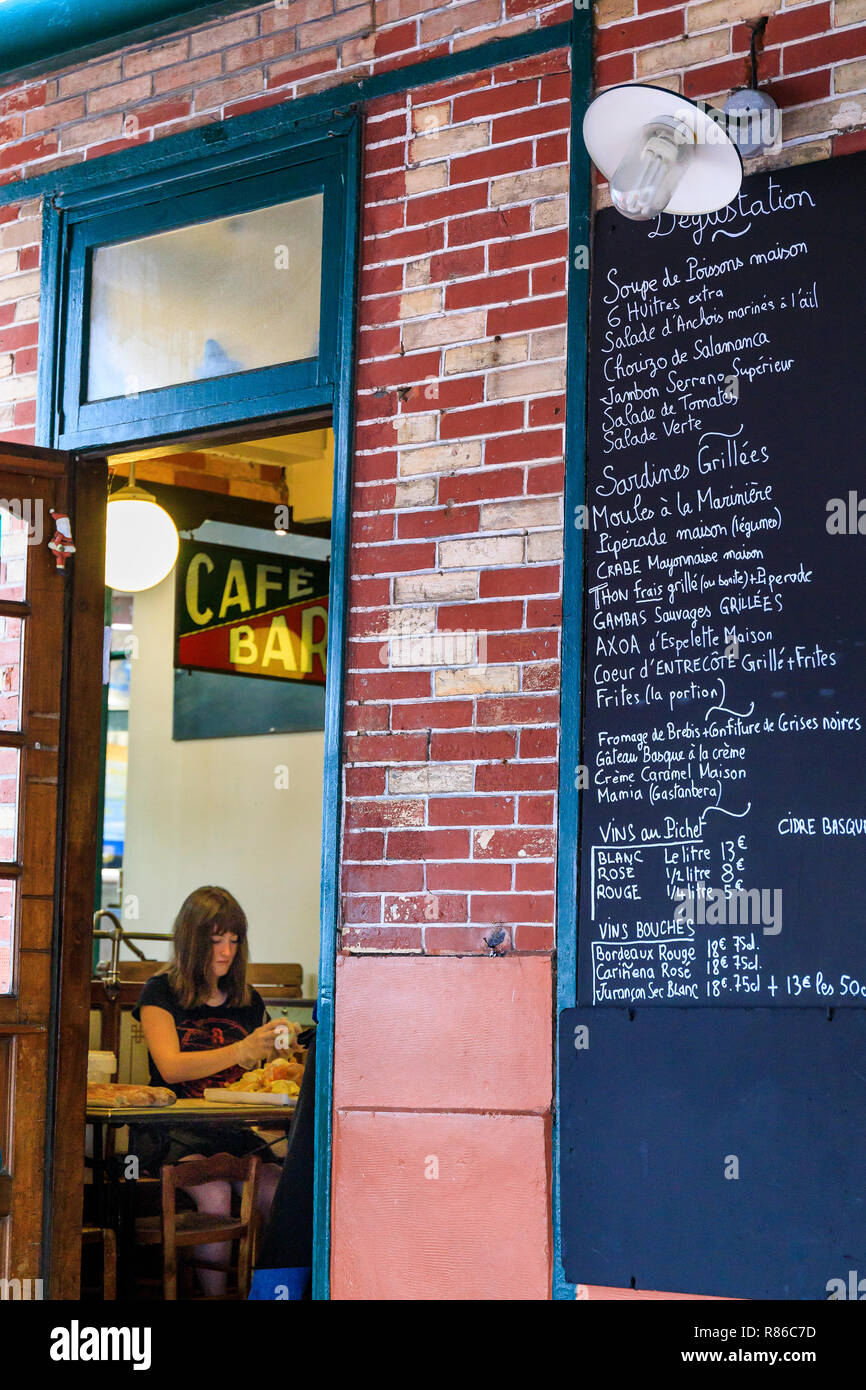 Dégustation
Soupe de Poissons maison
6 Huîtres extra
Salade d'Anchois marinés à l'aïl
Chorizo de Salamanca
Jambon Serrano Supérieur
Salade de Tomates
Salade Verte
Sardines Grillées
Moules à la Marinière
Piperade maison (légumes)
CRABE Mayonnaise maison
THON Frais grillé (ou boite) + Piperade
GAMBAS Sauvages GRILLÉES
AXOA d'Espelette Maison
Coeur d'ENTRECÔTE Grillé + Frites
Frites (la portion)
Fromage de Brebis + Confiture de Cerises noires
Gâteau Basque à la crème
Crème Caramel Maison
Mamia (Gastanbera)
VINS au Pichet
CIDRE BASQUE
BLANC Le litre 13€
ROSÉ 1/2 litre 8€
ROUGE 1/4 litre 5€
VINS BOUCHÉS
Bordeaux Rouge 18€ 75cl.
Cariñena Rosé 18€ 75cl.
Jurançon Sec Blanc 18€.75cl + 13€ les 50c
CAFÉ
BAR
alamy
Image ID: R86C7D
www.alamy.com